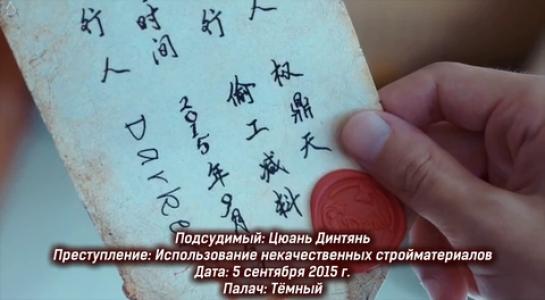 人 权鼎天
行 偷工减料
时间 2015年9月
行人 Darke
Подсудимый: Цюань Динтянь
Преступление: Использование некачественных стройматериалов
Дата: 5 сентября 2015 г.
Палач: Тёмный